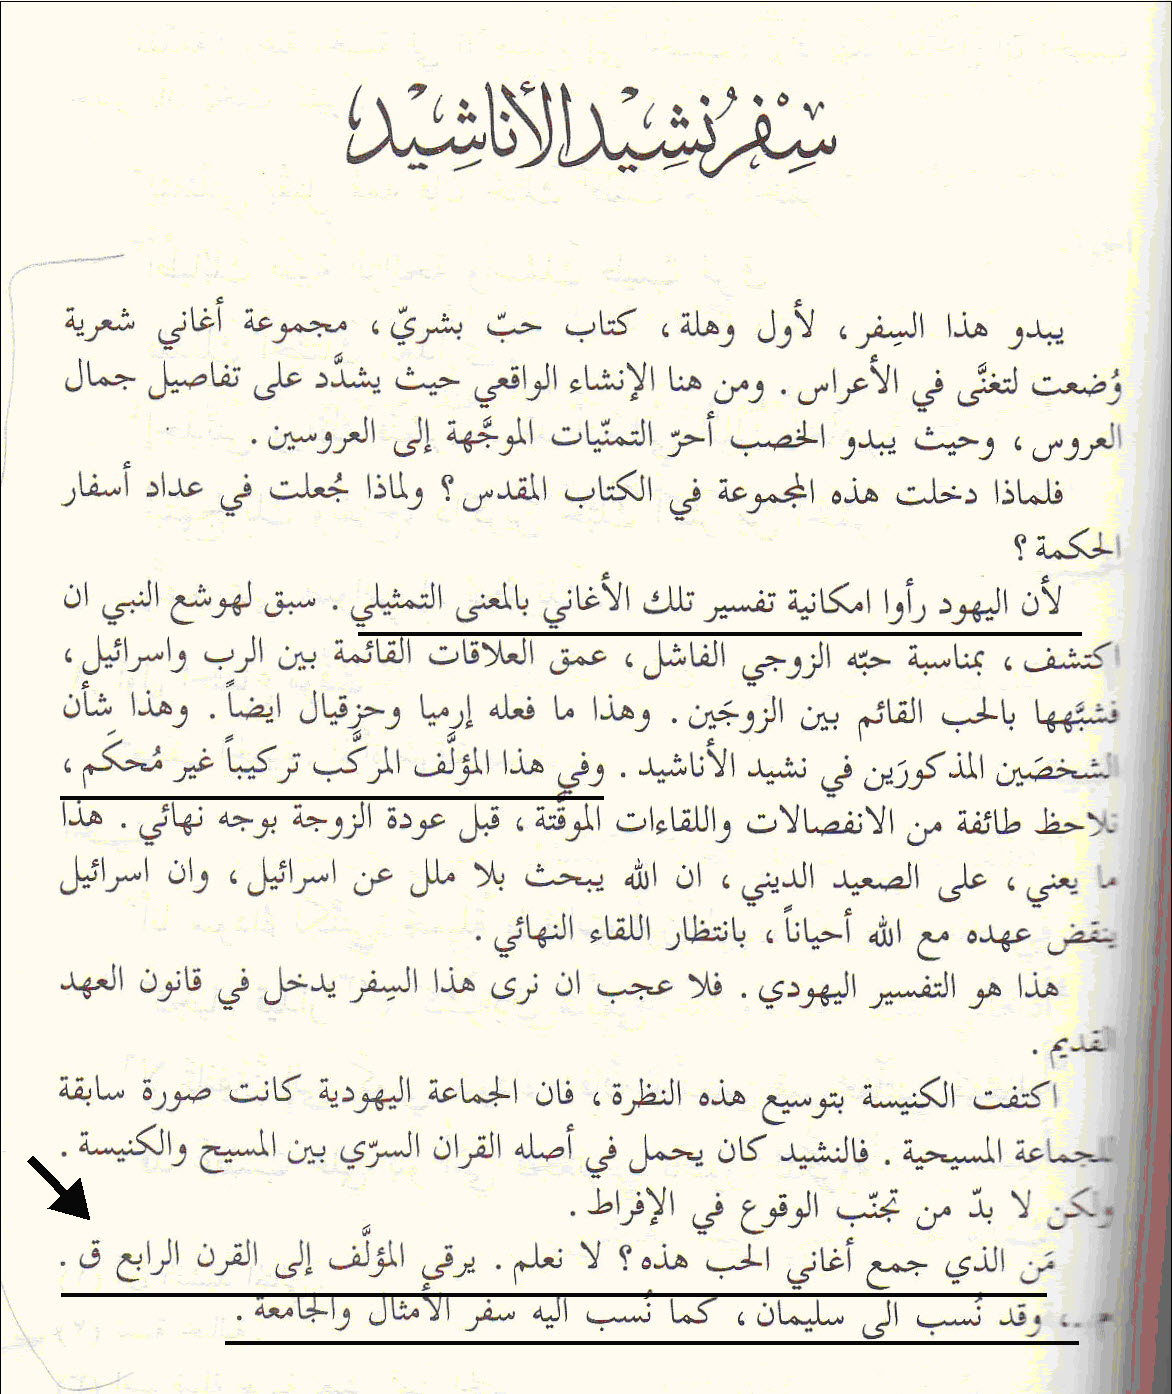 سِفْرُ نَشِيد الأناشِيد
يبدو هذا السِفر ، لأول وهلة ، كتاب حبّ بشريّ ، مجموعة أغاني شعرية
وُضعت لتغنَّى في الأعراس . ومن هنا الإنشاء الواقعي حيث يشدَّد على تفاصيل جمال
العروس ، وحيث يبدو الخصب أحرّ التمنّيات الموجَّهة إلى العروسين .
فلماذا دخلت هذه المجموعة في الكتاب المقدس ؟ ولماذا جُعلت في عداد أسفار
الحكمة ؟
لأن اليهود رأوا امكانية تفسير تلك الأغاني بالمعنى التمثيلي . سبق لهوشع النبي ان
اكتشف ، بمناسبة حبّه الزوجي الفاشل ، عمق العلاقات القائمة بين الرب واسرائيل ،
فشبَّهها بالحب القائم بين الزوجَين . وهذا ما فعله إرميا وحزقيال ايضاً . وهذا شأن
الشخصَين المذكورَين في نشيد الأناشيد . وفي هذا المؤلَّف المركَّب تركيباً غير مُحكَم ،
تلاحظ طائفة من الانفصالات واللقاءات الموقَّتة ، قبل عودة الزوجة بوجه نهائي . هذا
ما يعني ، على الصعيد الديني ، ان الله يبحث بلا ملل عن اسرائيل ، وان اسرائيل
ينقض عهده مع الله أحياناً ، بانتظار اللقاء النهائي .
هذا هو التفسير اليهودي . فلا عجب ان نرى هذا السِفر يدخل في قانون العهد
القديم .
اكتفت الكنيسة بتوسيع هذه النظرة ، فان الجماعة اليهودية كانت صورة سابقة
للجماعة المسيحية . فالنشيد كان يحمل في أصله القران السرّي بين المسيح والكنيسة .
ولكن لا بدّ من تجنّب الوقوع في الإفراط .
مَن الذي جمع أغاني الحب هذه ؟ لا نعلم . يرقى المؤلَّف إلى القرن الرابع ق .
، وقد نُسب الى سليمان ، كما نُسب اليه سفر الأمثال والجامعة .